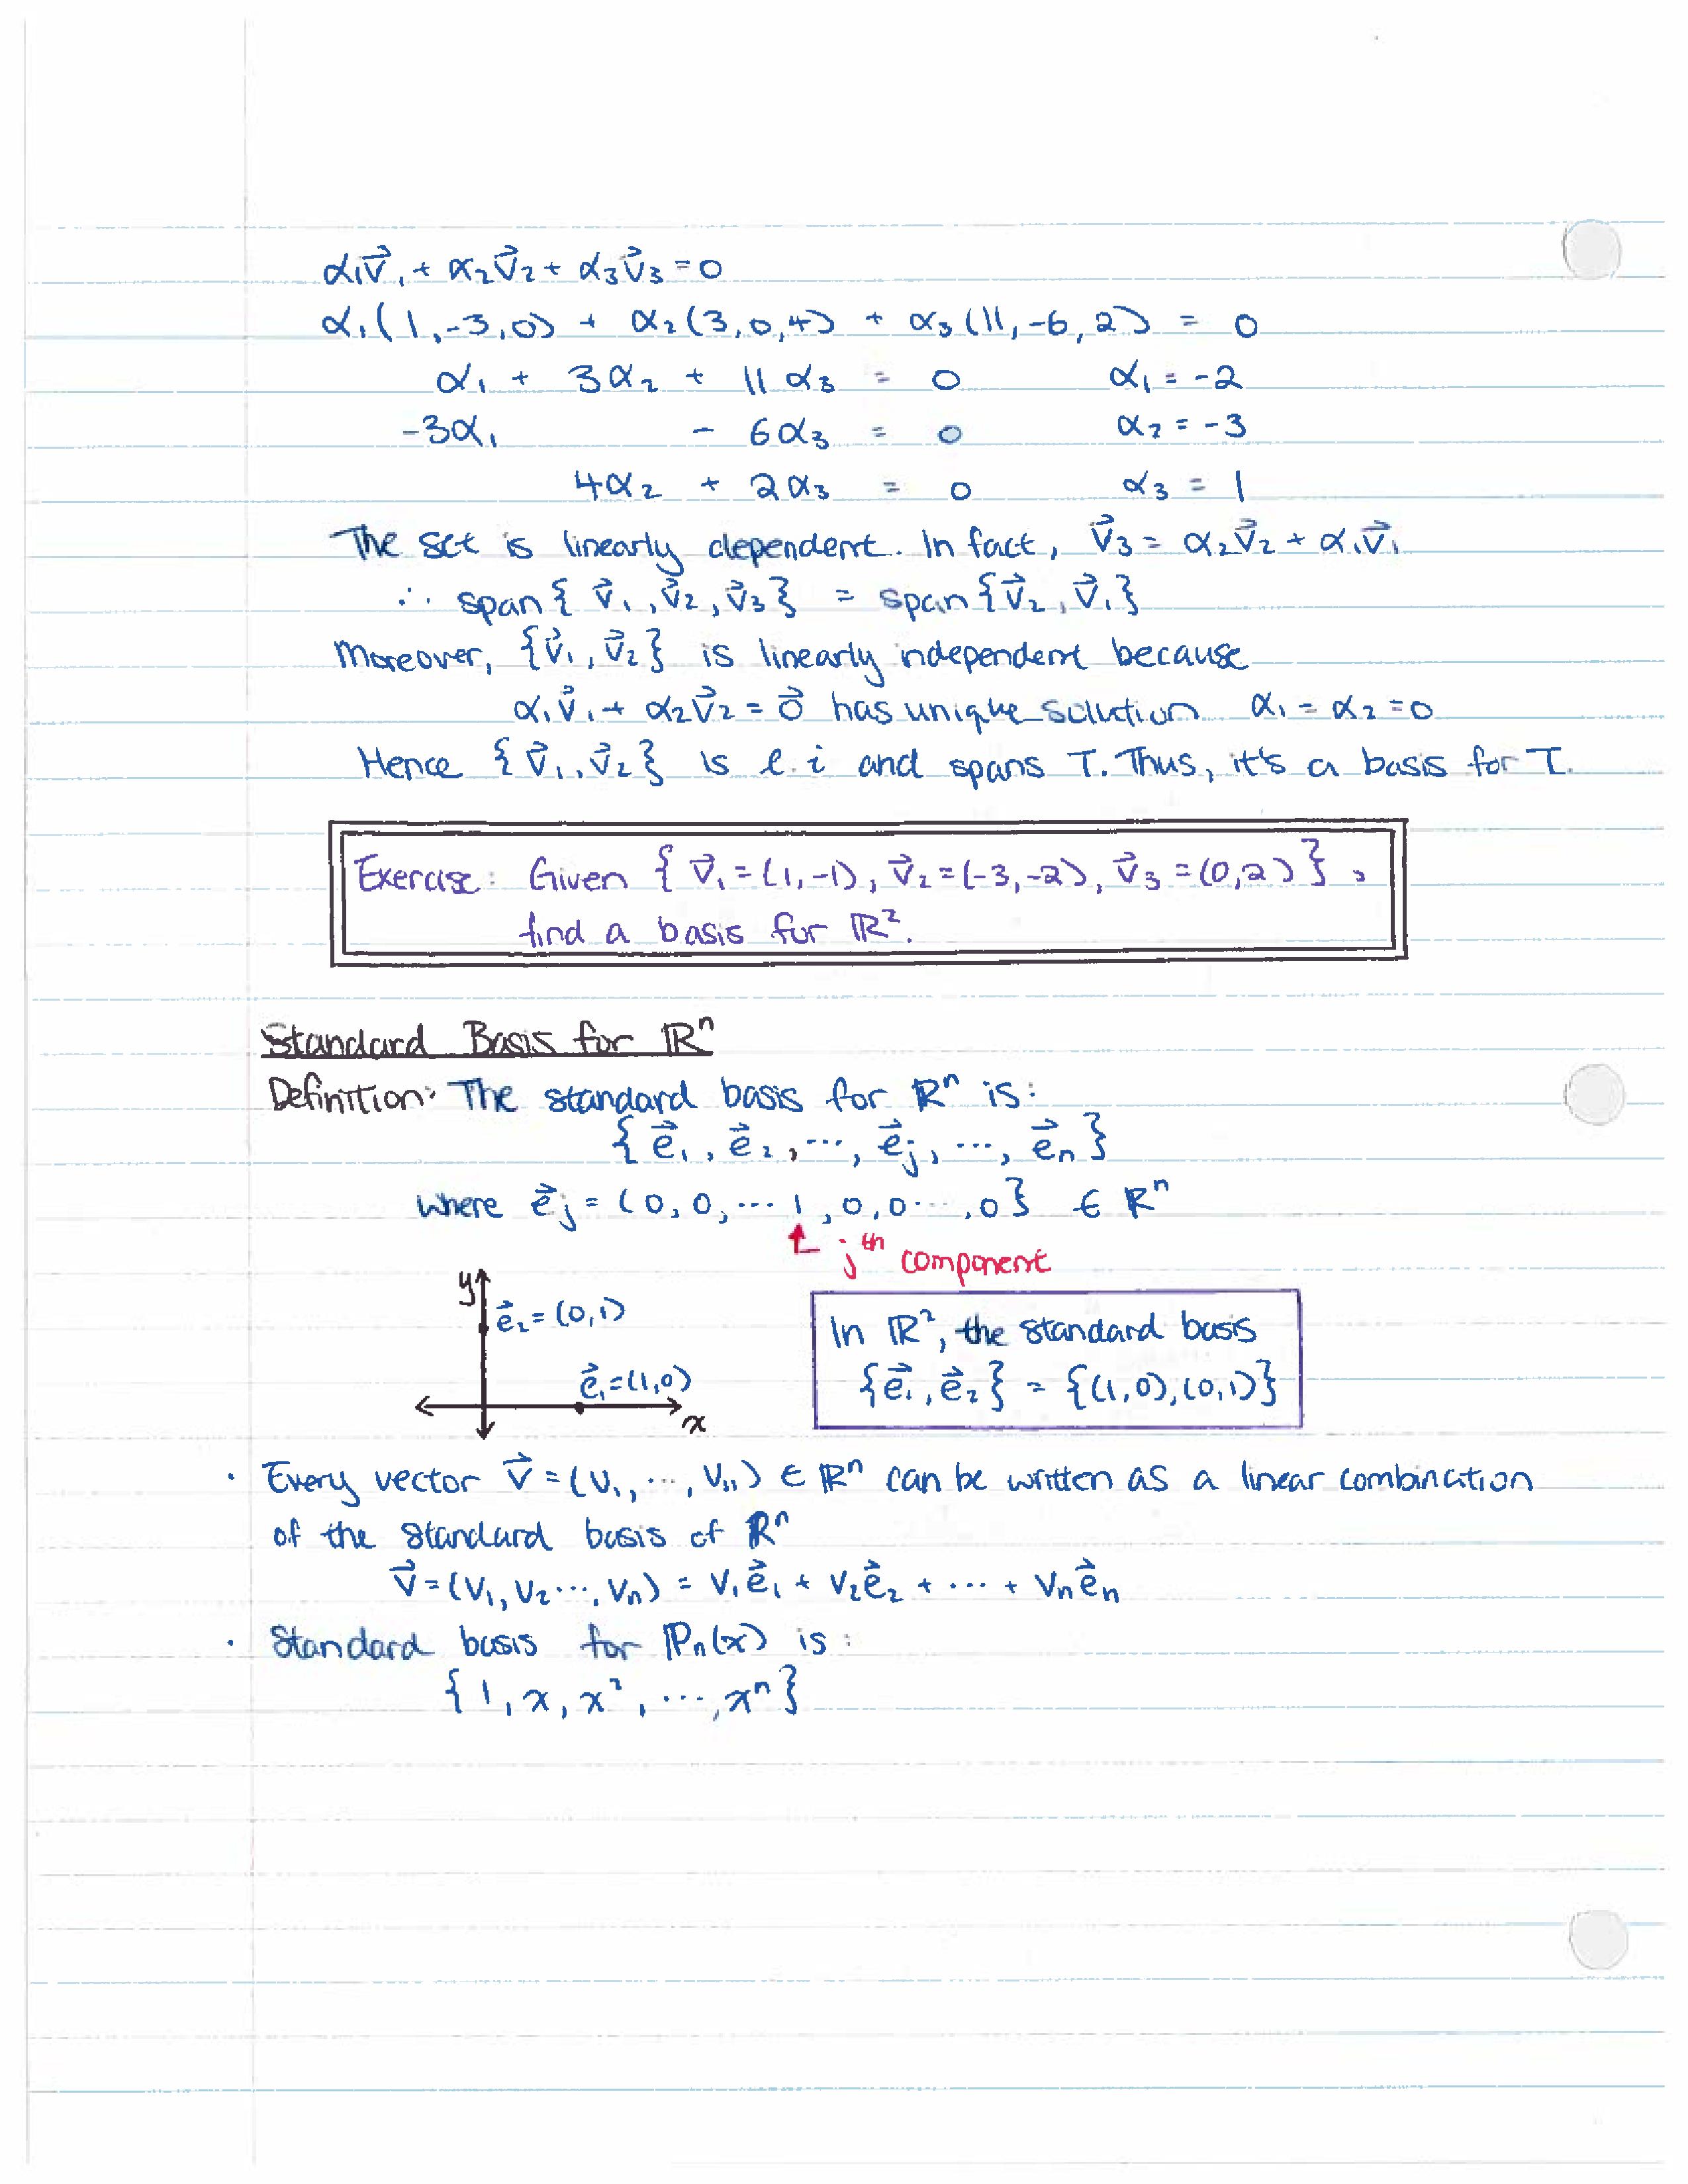 α₁v⃗₁ + α₂v⃗₂ + α₃v⃗₃ = 0
α₁(1,-3,0) + α₂(3,0,4) + α₃(11,-6,2) = 0
α₁ + 3α₂ + 11α₃ = 0 α₁ = -2
-3α₁ - 6α₃ = 0 α₂ = -3
4α₂ + 2α₃ = 0 α₃ = 1
The set is linearly dependent. In fact, v⃗₃ = α₂v⃗₂ + α₁v⃗₁
∴ span{v⃗₁, v⃗₂, v⃗₃} = span{v⃗₂, v⃗₁}
Moreover, {v⃗₁, v⃗₂} is linearly independent because
α₁v⃗₁ + α₂v⃗₂ = 0⃗ has unique solution α₁ = α₂ = 0
Hence {v⃗₁, v⃗₂} is l.i and spans T. Thus, it's a basis for T.
Exercise: Given {v⃗₁ = (1,-1), v⃗₂ = (-3,-2), v⃗₃ = (0,2)},
find a basis for ℝ².
Standard Basis for ℝⁿ
Definition: The standard basis for ℝⁿ is:
{e⃗₁, e⃗₂, ..., e⃗ⱼ, ..., e⃗ₙ}
where e⃗ⱼ = (0, 0, ... 1, 0, 0 ..., 0} ∈ ℝⁿ
jᵗʰ component
y
e⃗₂ = (0,1)
e⃗₁ = (1,0)
x
In ℝ², the standard basis
{e⃗₁, e⃗₂} = {(1,0), (0,1)}
· Every vector v⃗ = (v₁, ..., vₙ) ∈ ℝⁿ can be written as a linear combination
of the standard basis of ℝⁿ
v⃗ = (v₁, v₂ ..., vₙ) = v₁e⃗₁ + v₂e⃗₂ + ... + vₙe⃗ₙ
· Standard basis for ℙₙ(x) is:
{1, x, x², ..., xⁿ}